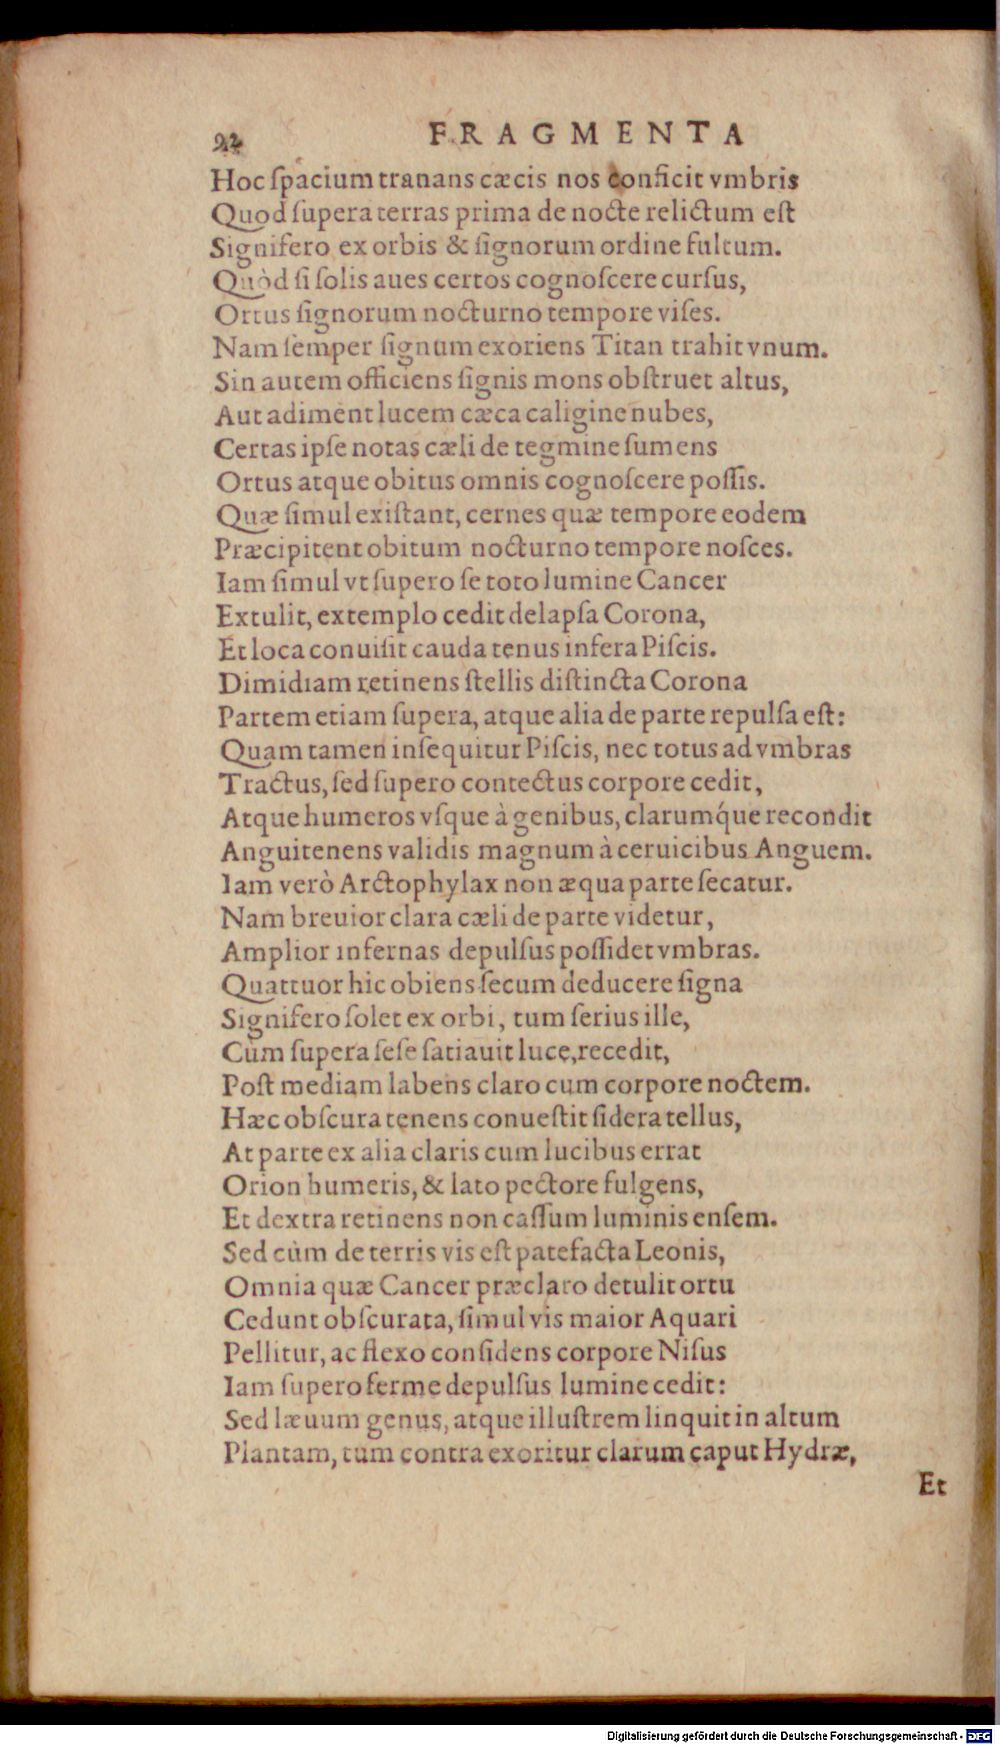 22 FRAGMENTA
Hoc ſpacium tranans cæcis nos conficit vmbris
Quod ſupera terras prima de nocte relictum eſt
Signifero ex orbis & ſignorum ordine fultum.
Quòd ſi ſolis aues certos cognoſcere curſus,
Ortus ſignorum nocturno tempore viſes.
Nam ſemper ſignum exoriens Titan trahit vnum.
Sin autem officiens ſignis mons obſtruet altus,
Aut adiment lucem cæca caligine nubes,
Certas ipſe notas cæli de tegmine ſumens
Ortus atque obitus omnis cognoſcere poſſis.
Quæ ſimul exiſtant, cernes quæ tempore eodem
Præcipitent obitum nocturno tempore noſces.
Iam ſimul vt ſupero ſe toto lumine Cancer
Extulit, extemplo cedit delapſa Corona,
Et loca conuiſit cauda tenus infera Piſcis.
Dimidiam retinens ſtellis diſtincta Corona
Partem etiam ſupera, atque alia de parte repulſa eſt:
Quam tamen inſequitur Piſcis, nec totus ad vmbras
Tractus, ſed ſupero contectus corpore cedit,
Atque humeros vſque à genibus, clarumq́ue recondit
Anguitenens validis magnum à ceruicibus Anguem.
Iam verò Arctophylax non æqua parte ſecatur.
Nam breuior clara cæli de parte videtur,
Amplior infernas depulſus poſſidet vmbras.
Quattuor hic obiens ſecum deducere ſigna
Signifero ſolet ex orbi, tum ſerius ille,
Cùm ſupera ſeſe ſatiauit luce, recedit,
Poſt mediam labens claro cum corpore noctem.
Hæc obſcura tenens conueſtit ſidera tellus,
At parte ex alia claris cum lucibus errat
Orion humeris, & lato pectore fulgens,
Et dextra retinens non caſſum luminis enſem.
Sed cùm de terris vis eſt patefacta Leonis,
Omnia quæ Cancer præclaro detulit ortu
Cedunt obſcurata, ſimul vis maior Aquari
Pellitur, ac flexo conſidens corpore Niſus
Iam ſupero ferme depulſus lumine cedit:
Sed læuum genus, atque illuſtrem linquit in altum
Plantam, tum contra exoritur clarum caput Hydræ,
Et
Digitalisierung gefördert durch die Deutsche Forschungsgemeinschaft - DFG